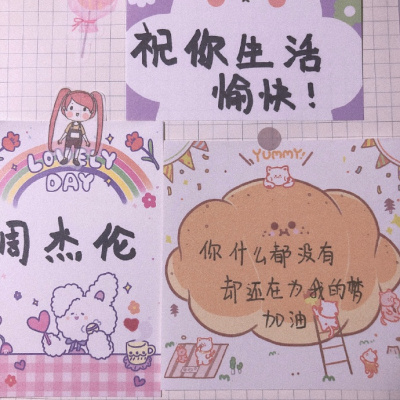 祝你生活
愉快！
LOVELY
DAY
周杰伦
YUMMY!
你什么都没有
却还在为我的梦
加油